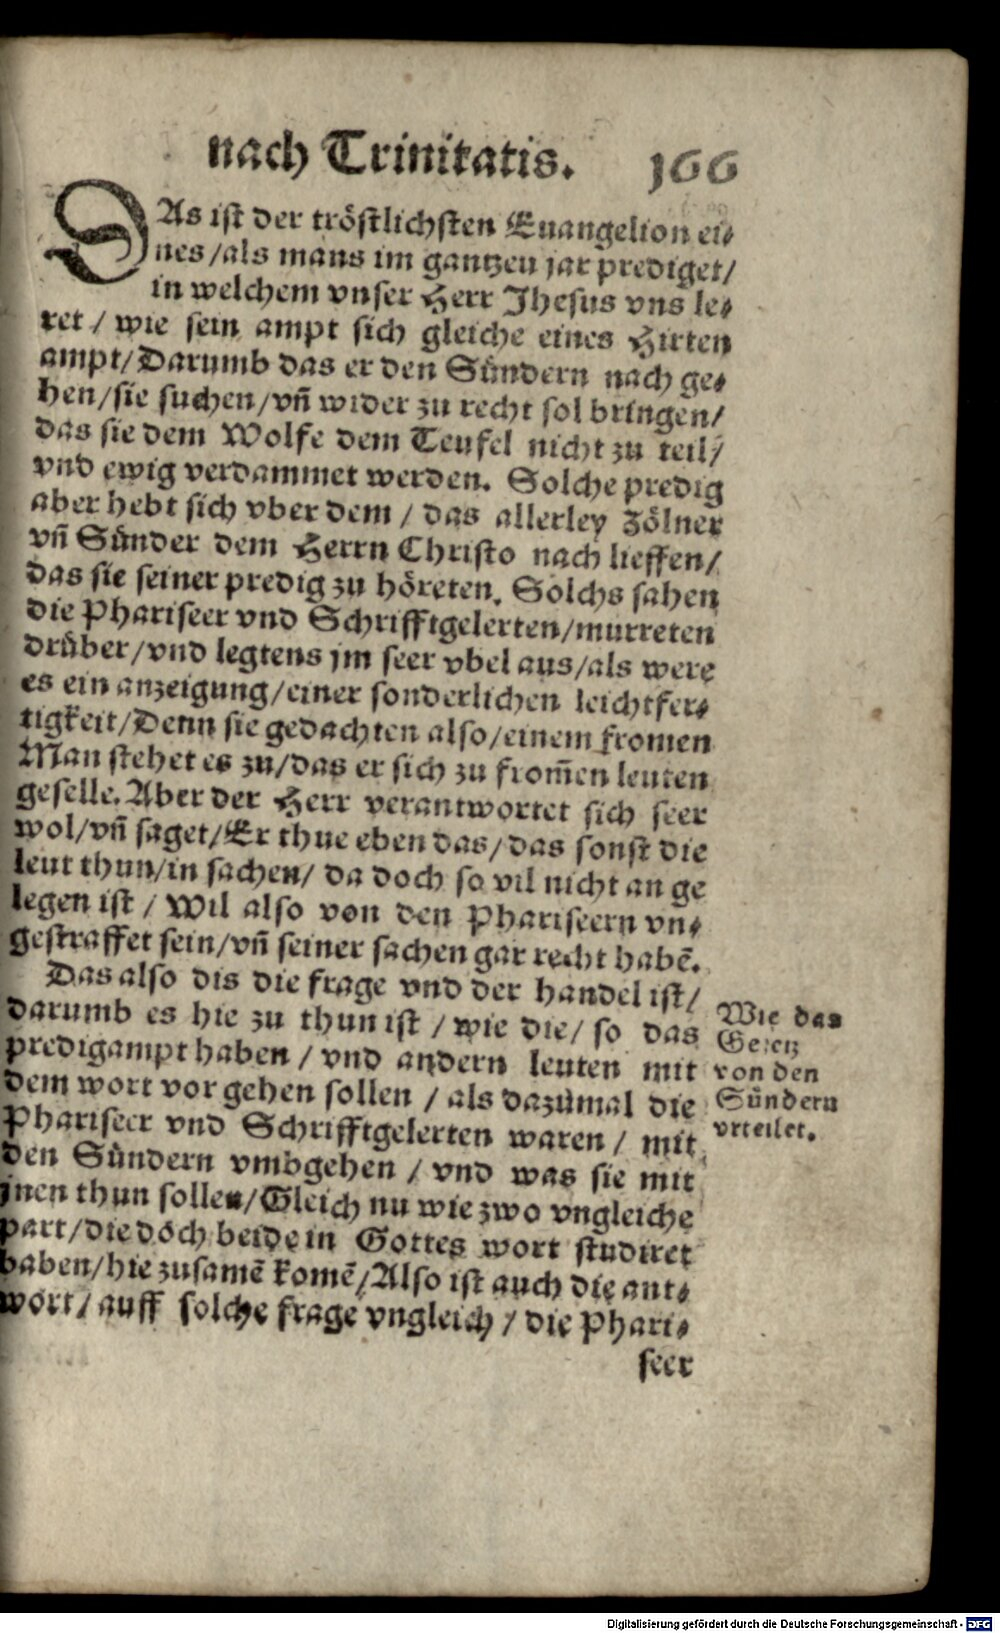 nach Trinitatis. 166
DAs ist der tröstlichsten Euangelion ei⸗
nes/als mans im gantzen jar prediget/
in welchem vnser Herr Jhesus vns le⸗
ret / wie sein ampt sich gleiche eines Hirten
ampt/Darumb das er den Sündern nach ge⸗
hen/sie suchen/vñ wider zu recht sol bringen/
das sie dem Wolfe dem Teufel nicht zu teil/
vnd ewig verdammet werden. Solche predig
aber hebt sich vber dem / das allerley Zölner
vñ Sünder dem Herrn Christo nach lieffen/
das sie seiner predig zu höreten. Solchs sahen
die Phariseer vnd Schrifftgelerten/murreten
drüber/vnd legtens jm seer vbel aus/als were
es ein anzeigung/einer sonderlichen leichtfer⸗
tigkeit/Denn sie gedachten also/einem fromen
Man stehet es zu/das er sich zu from̃en leuten
geselle. Aber der Herr verantwortet sich seer
wol/vñ saget/Er thue eben das/das sonst die
leut thun/in sachen/ da doch so vil nicht an ge
legen ist / Wil also von den Phariseern vn⸗
gestraffet sein/vñ seiner sachen gar recht habẽ.
Das also dis die frage vnd der handel ist/
darumb es hie zu thun ist / wie die/ so das
predigampt haben / vnd andern leuten mit
dem wort vor gehen sollen / als dazumal die
Phariseer vnd Schrifftgelerten waren / mit
den Sündern vmbgehen / vnd was sie mit
jnen thun sollen/Gleich nu wie zwo vngleiche
part/die doch beide in Gottes wort studiret
haben/hie zusamẽ komẽ/Also ist auch die ant⸗
wort/ auff solche frage vngleich / die Phari⸗
seer
Wie das
Gesetz
von den
Sündern
vrteilet.
Digitalisierung gefördert durch die Deutsche Forschungsgemeinschaft - DFG